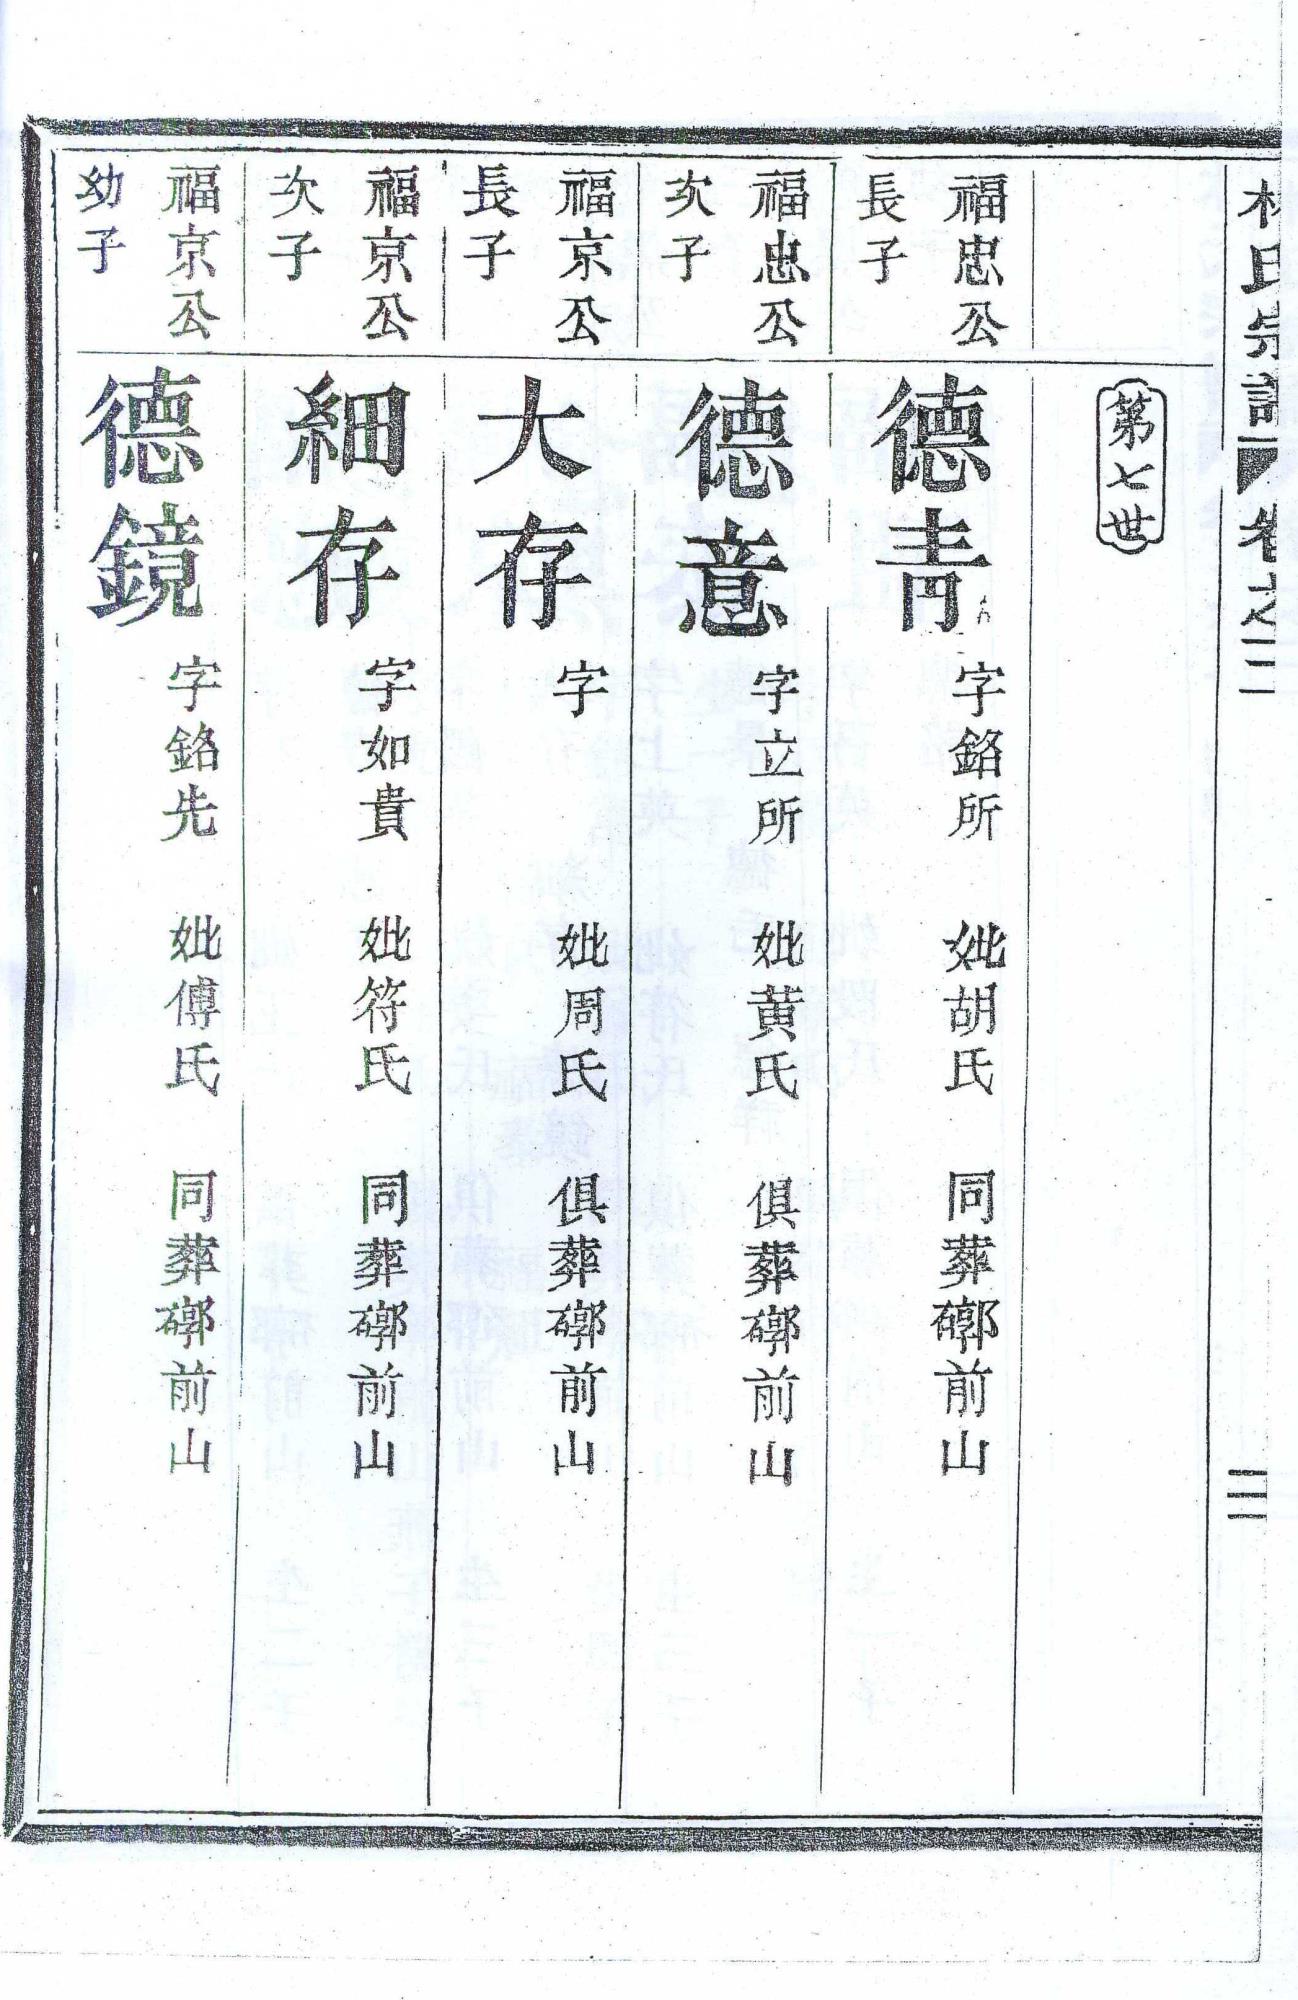 林氏宗譜 卷之二
三
第七世
福忠公
長子
德青
字銘所 妣胡氏 同葬𥕏前山
福忠公
次子
德意
字立所 妣黄氏 俱葬𥕏前山
福京公
長子
大存
字 妣周氏 俱葬𥕏前山
福京公
次子
細存
字如貴 妣符氏 同葬𥕏前山
福京公
幼子
德鏡
字銘先 妣傅氏 同葬𥕏前山